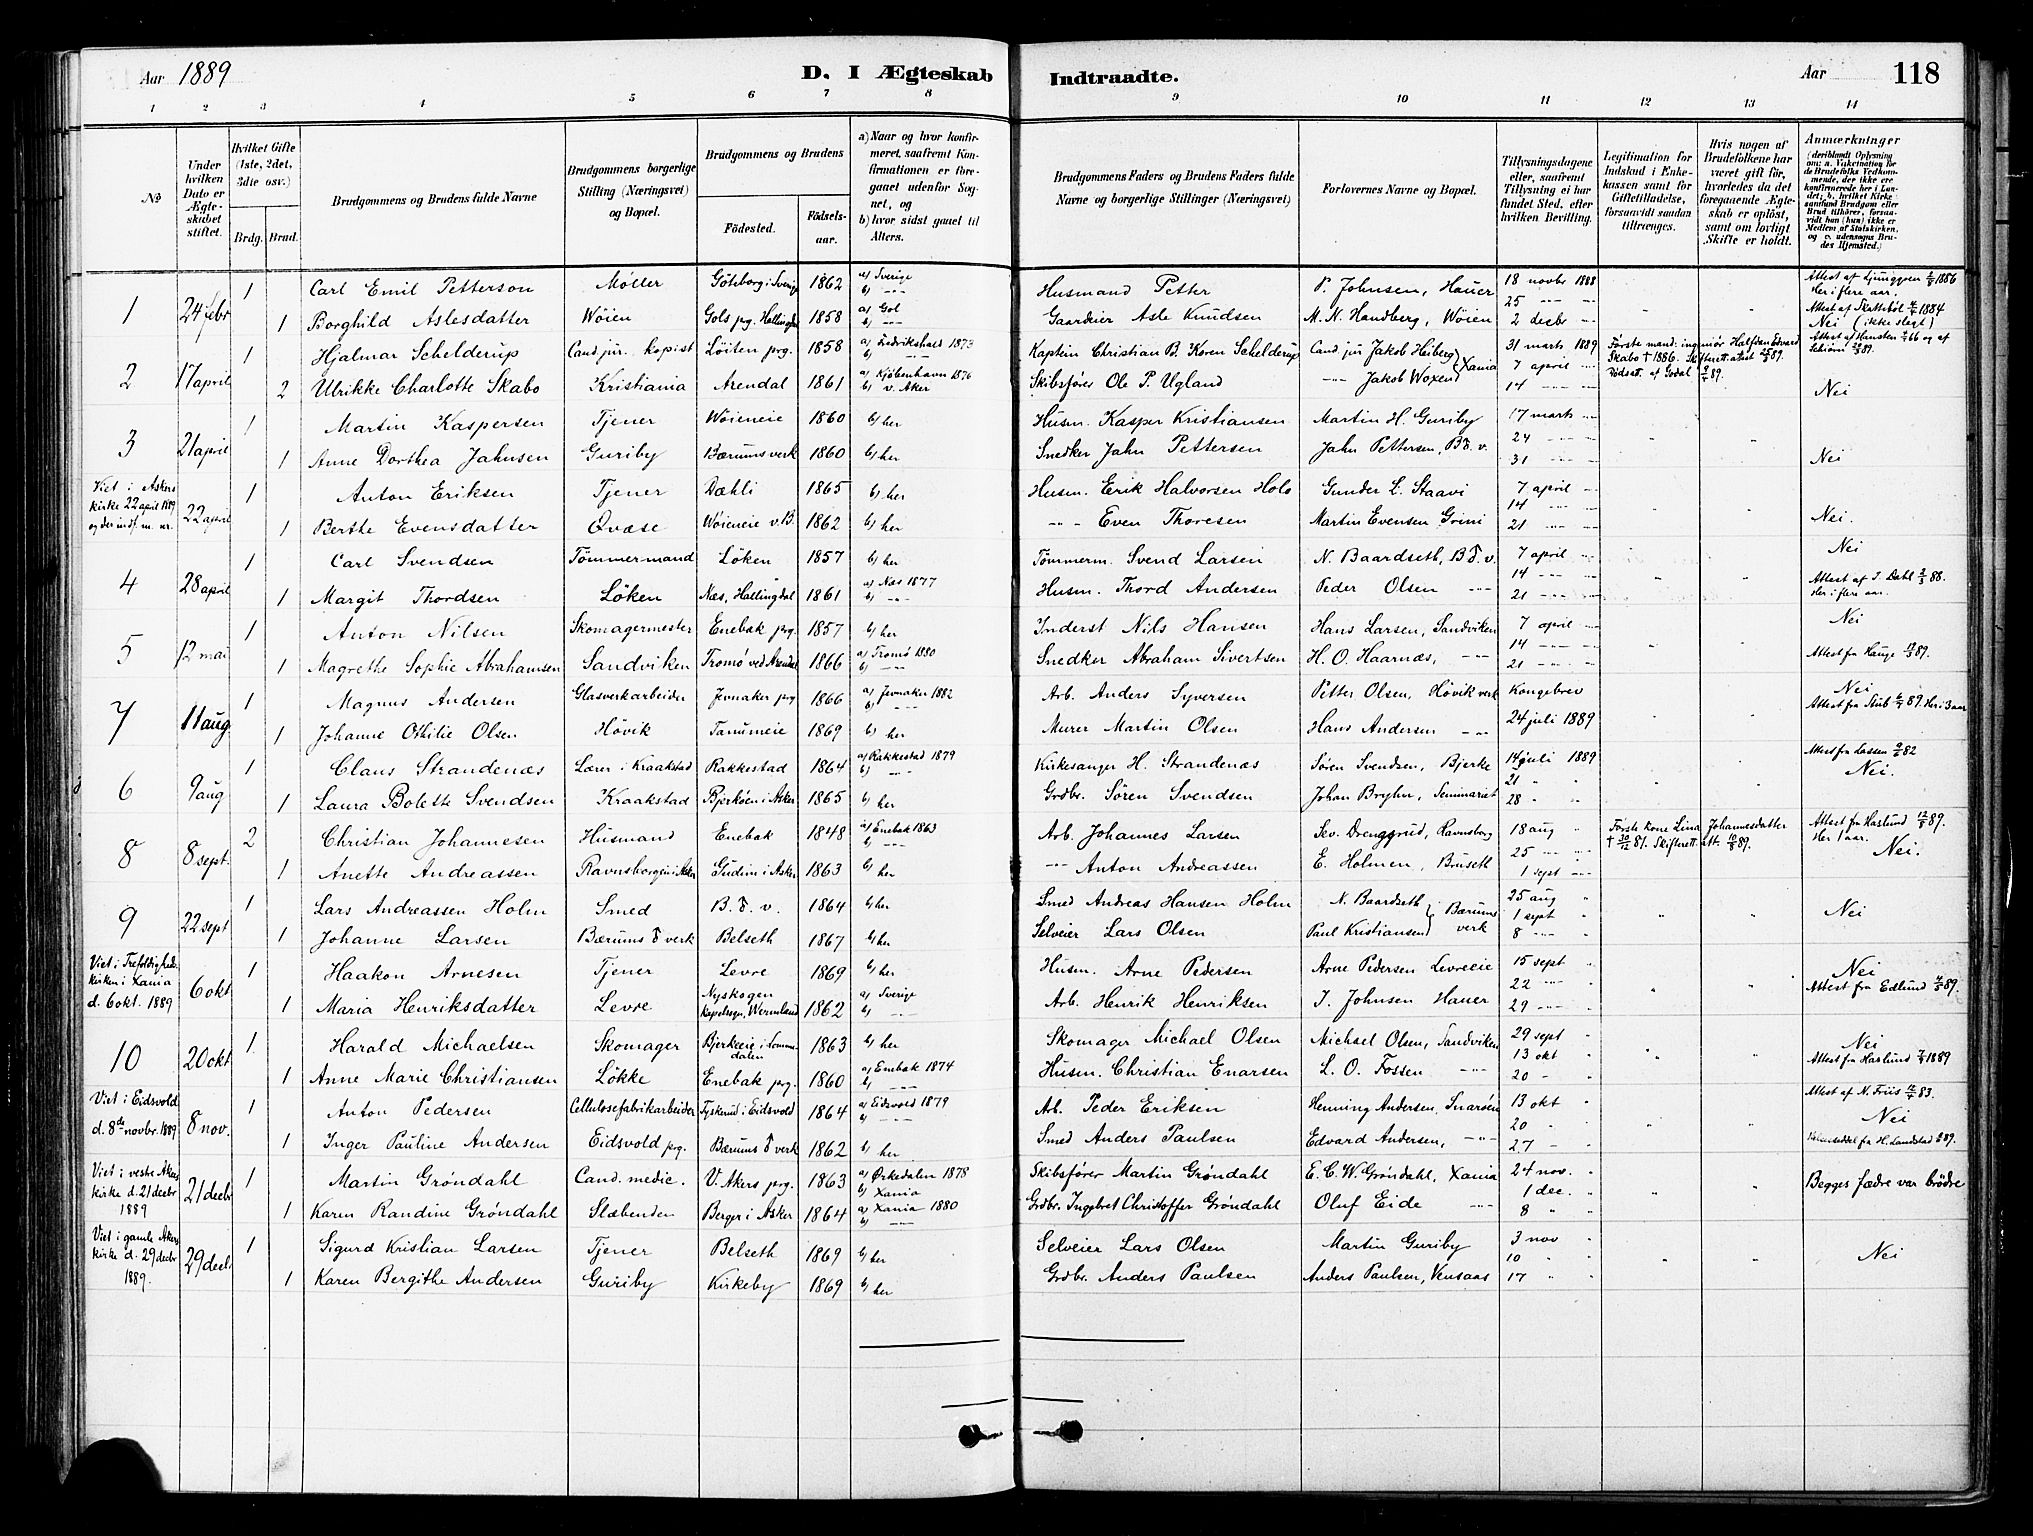 Aar 1889
D. I Ægteskab Indtraadte.
Aar
118
1 2 3 4 5 6 7 8 9 10 11 12 13 14
No
Under hvilken Dato er Ægteskabet stiftet.
Hvilket Gifte (1ste, 2det, 3die osv.)
Brdg. Brud.
Brudgommens og Brudens fulde Navne
Brudgommens borgerlige Stilling (Næringsvei) og Bopæl.
Brudgommens og Brudens
Fødested.
Fødselsaar.
a) Naar og hvor konfirmeret, saafremt Konfirmationen er foregaaet udenfor Sognet, og
b) hvor sidst gaaet til Alters.
Brudgommens Faders og Brudens Faders fulde Navne og borgerlige Stillinger (Næringsvei)
Forlovernes Navne og Bopæl.
Tillysningsdagene eller, saafremt Tillysning ei har fundet Sted, efter hvilken Bevilling.
Legitimation for Indskud i Enkekassen samt for Giftetilladelse, forsaavidt saadan tiltrænges.
Hvis nogen af Brudefolkene har været gift før, hvorledes da det foregaaende Ægteskab er opløst, samt om lovligt Skifte er holdt.
Anmærkninger (deriblandt Oplysning om: a. Vakcination for de Brudefolks Vedkommende, der ikke ere konfirmerede her i Landet; b. hvilket Kirkesamfund Brudgom eller Brud tilhører, forsaavidt han (hun) ikke er Medlem af Statskirken, og c. udensogns Brudes Hjemsted.)
1 24 febr 1 Carl Emil Petterson Møller Göteborg i Sverige 1862 a) Sverige b) — Husmand Petter P. Johnsen, Hauer 18 novbr 1888 Attest af Ljunggren 1886 Her i flere aar.
1 Borghild Aslesdatter Wøien Gols prg. Hallingdal 1858 a) Gol b) — Gaardeier Asle Knudsen M. N. Handberg, Wøien 25 — 2 decbr — Attest af Skattebøl 1884 Nei (ikke slegt)
2 17 april 1 Hjalmar Schelderup Cand. jur. kopist Løiten prg. 1858 a) Fredrikshald 1873 b) — Kaptein Christian B. Koren Schelderup Cand. jur Jakob Heiberg 31 marts 1889 Første mand: ingeniør Halfdan Edvard Skabo † 1886. Skifterett. attest 89. Attest af Hansten 66 og af Schiørn 89.
2 Ulrikke Charlotte Skabo Kristiania Arendal 1861 a) Kjøbenhavn 1876 b) v. Aker Skibsfører Ole P. Ugland — Jakob Woxen Xania 7 april — 14 — Dødsat. af Godal 89. Nei
3 21 april 1 Martin Kaspersen Tjener Wøieneie 1860 b) her Husm. Kasper Kristiansen Martin H. Guriby 17 marts —
1 Anne Dorthea Jahnsen Guriby Bærums verk 1860 b) her Snedker Jahn Pettersen Jahn Pettersen, B.v. 24 — 31 — Nei
Viet i Askers kirke 22 april 1889 og der indf. m. nr. 22 april 1 Anton Eriksen Tjener Dæhli 1865 b) her Husm. Erik Halvorsen Holo Gunder L. Staavi 7 april —
1 Berthe Evensdatter Øvøse Wøieneie v.B. 1862 b) her — Even Thoresen Martin Evensen Grini 14 — 21 — Nei.
4 28 april 1 Carl Svendsen Tømmermand Løken 1857 b) her Tømmerm. Svend Larsen N. Baardseth, B.v. 7 april — Nei
1 Margit Thordsen Løken Næs, Hallingdal 1861 a) Næs 1877 b) — Husm. Thord Andersen Peder Olsen — 14 — 21 — Attest af J. Dahl 88. Her i flere aar.
5 12 mai 1 Anton Nilsen Skomagermester Enebak prg. 1857 b) her Inderst Nils Hansen Hans Larsen, Sandviken 7 april — Nei
1 Magrethe Sophie Abrahamsen Sandviken Tromø ved Arendal 1866 a) Tromø 1880 b) — Snedker Abraham Sivertsen H. O. Haarnæs, — 14 — 21 — Attest fra Hauge 89.
7 11 aug 1 Magnus Andersen Glasverkarbeider Jevnaker prg 1866 a) Jevnaker 1882 b) — Arb. Anders Syversen Petter Olsen, Høvik verk Kongebrev Nei Attest fra Stub 89. Her i 3 aar
1 Johanne Othilie Olsen Høvik Tanumeie 1869 b) her Murer Martin Olsen Hans Andersen — 24 juli 1889
6 9 aug 1 Claus Strandenæs Lærer i Kraakstad Rakkestad 1864 a) Rakkestad 1879 b) — Kirkesanger H. Strandenæs Søren Svendsen, Bjerke 14 juli 1889 Attest fra Lassen 82 Nei.
1 Laura Bolette Svendsen Kraakstad Bjerkøen i Asker 1865 b) her Grdbr. Søren Svendsen Johan Bryhn, Seminariet 21 " 28 "
8 8 sept. 2 Christian Johannesen Husmand Enebak 1848 a) Enebak 1863 b) — Arb. Johannes Larsen Sev. Drenggrud, Ravnsborg 18 aug " Første kone Lina Johannesdatter † 30/12 81. Skifterett. att. 10/8 89. Attest fra Haslund 89. Her 1 aar.
1 Anette Andreassen Ravnsborgen i Asker Gudim i Asker 1863 b) her — Anton Andreassen E. Holmen, Bruseth 25 — 1 sept — Nei.
9 22 sept 1 Lars Andreassen Holm Smed B.v. 1864 b) her Smed Andreas Hansen Holm N. Baardseth 25 aug "
1 Johanne Larsen Bærums verk Belseth 1867 b) her Selveier Lars Olsen Paul Kristiansen Bærums verk 1 sept " 8 — Nei
Viet i Trefoldighedskirken i Xania d. 6 okt. 1889 6 okt 1 Haakon Arnesen Tjener Levre 1869 b) her Husm. Arne Pedersen Arne Pedersen Levreeie 15 sept " Nei
1 Maria Henriksdatter Levre Nyskogen Kapelsogn, Wermland 1862 a) Sverige b) — Arb. Henrik Henriksen J. Johnsen Hauer 22 — 29 — Attest fra Edlund 89.
10 20 okt 1 Harald Michaelsen Skomager Bjerkeeie i Lommedalen 1863 b) her Skomager Michael Olsen Michael Olsen, Sandviken 29 sept " Nei
1 Anne Marie Christiansen Løkke Enebak prg. 1860 a) Enebak 1874 b) — Husm. Christian Enarsen L. O. Fossen — 13 okt " 20 - Attest fra Haslund 1889
Viet i Eidsvold d. 8de novbr. 1889 8 nov. 1 Anton Pedersen Cellulosefabrikarbeider Tyskerud i Eidsvold 1864 a) Eidsvold 1879 b) — Arb. Peder Eriksen Henning Andersen, Snarøen 13 okt " Attest af N. Friis 83. Nei
1 Inger Pauline Andersen Eidsvold prg. Bærums verk 1862 b) her Smed Anders Paulsen Edvard Andersen, — 20 " 27 - fra H. Landstad 89.
Viet i vestre Akers kirke d. 21 decbr 1889 21 decbr 1 Martin Grøndahl Cand. medic. V. Akers prg. 1863 a) Ørkedalen 1878 b) Xania Skibsfører Martin Grøndahl E. C. W. Grøndahl, Xania 24 nov. " Begges fædre var brødre
1 Karen Randine Grøndahl Slæbenden Berger i Asker 1864 a) Xania 1880 b) — Grdbr. Ingebret Christoffer Grøndahl Oluf Eide — 1 dec. " 8 "
Viet i gamle Akers kirke d. 29 decbr 1889. 29 decbr 1 Sigurd Kristian Larsen Tjener Belseth 1869 b) her Selveier Lars Olsen Martin Guriby 3 nov "
1 Karen Bergithe Andersen Guriby Kirkeby 1869 b) her Grdbr. Anders Paulsen Anders Paulsen, Vensaas 10 " 17 " Nei